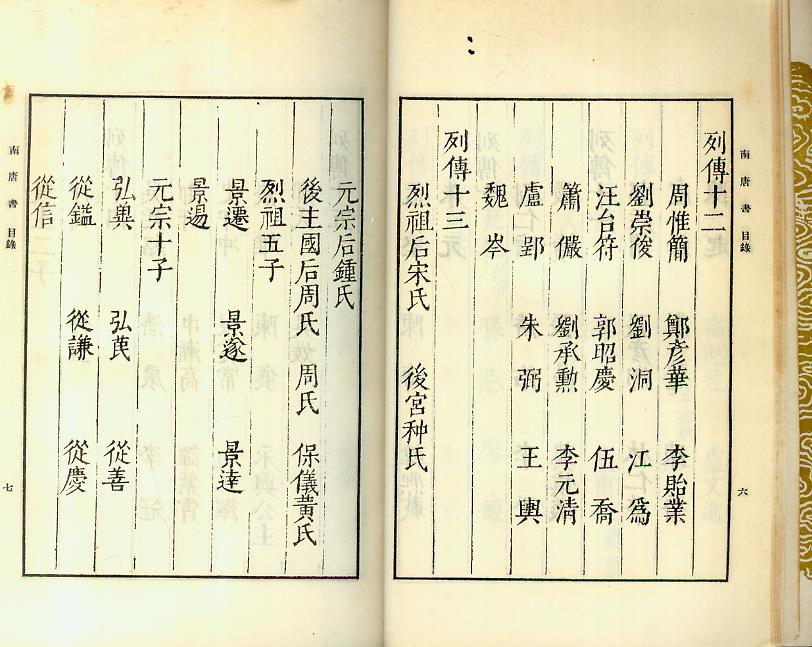 南唐書 目錄
六
列傳十二
周惟簡 鄭彥華 李貽業
劉崇俊 劉洞 江爲
汪台符 郭昭慶 伍喬
蕭儼 劉承勲 李元清
盧郢 朱弼 王輿
魏岑
列傳十三
烈祖后宋氏 後宮种氏
元宗后鍾氏
後主國后周氏 周氏 保儀黃氏
烈祖五子
景遷 景遂 景達
景逷
元宗十子
弘兾 弘茂 從善
從鎰 從謙 從慶
從信
南唐書 目錄
七